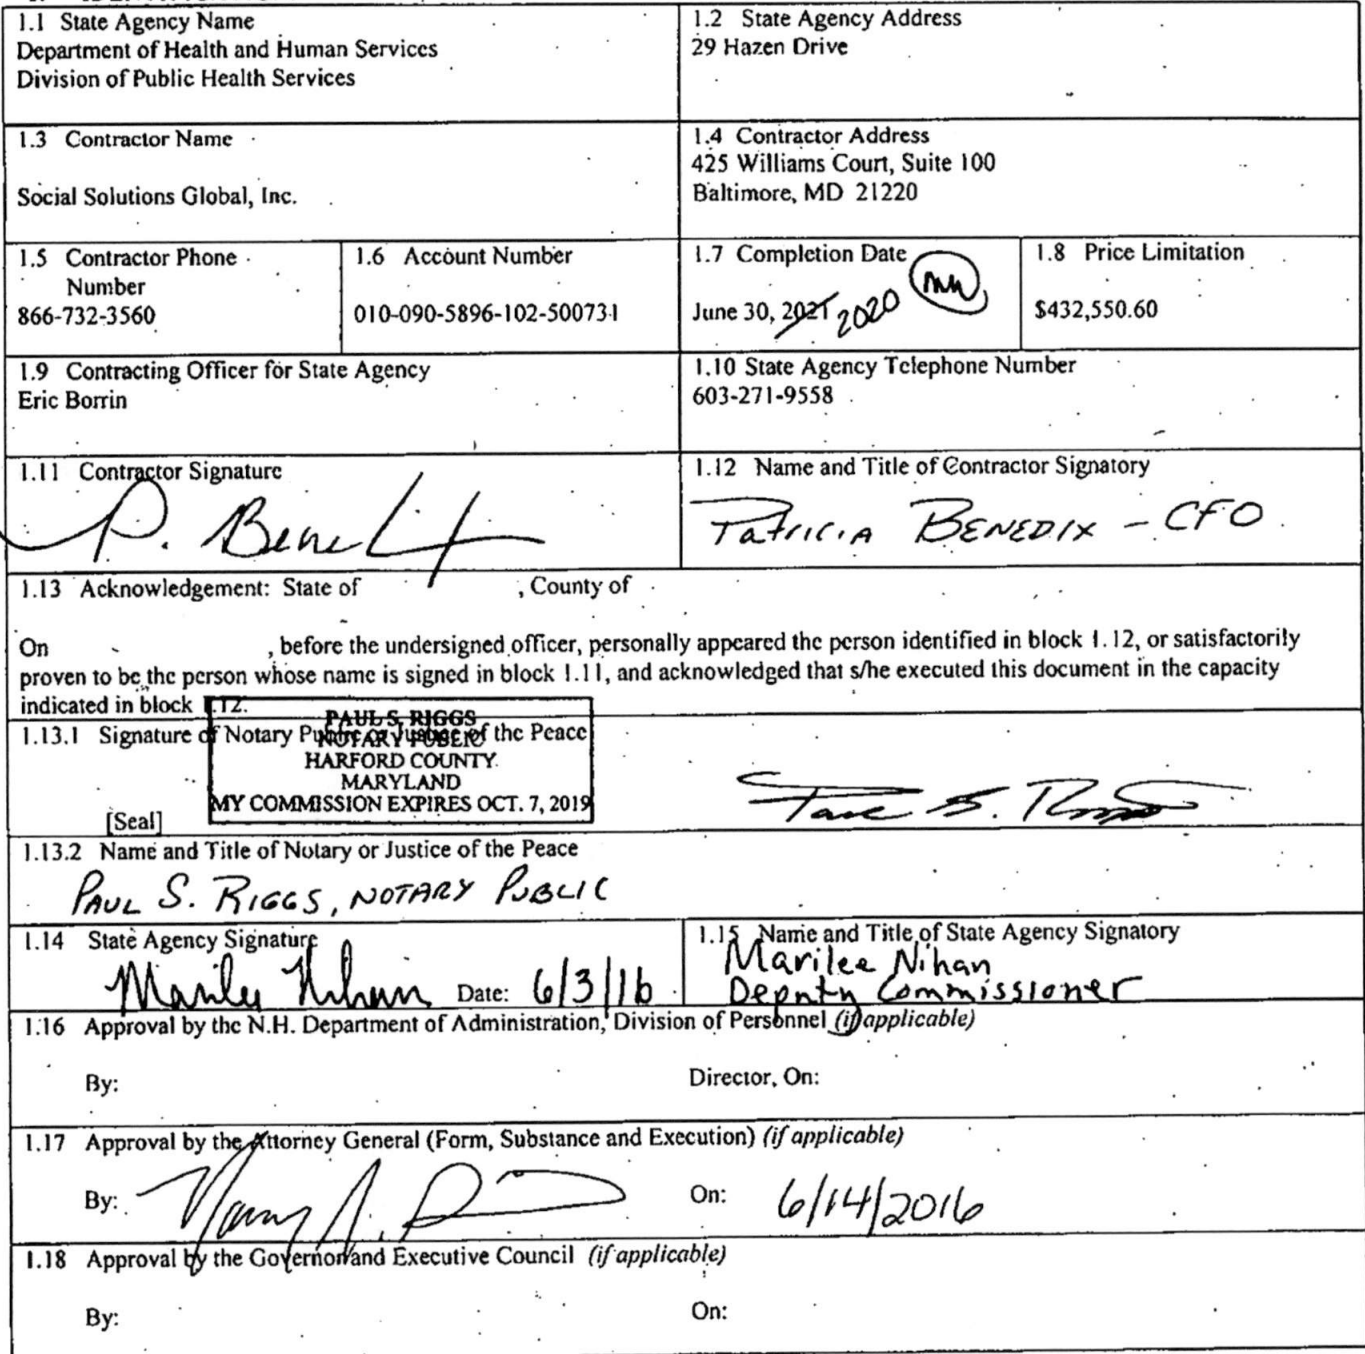 1.1 State Agency Name
Department of Health and Human Services
Division of Public Health Services
1.2 State Agency Address
29 Hazen Drive
1.3 Contractor Name
Social Solutions Global, Inc.
1.4 Contractor Address
425 Williams Court, Suite 100
Baltimore, MD 21220
1.5 Contractor Phone
Number
866-732-3560
1.6 Account Number
010-090-5896-102-500731
1.7 Completion Date
June 30, 2021 2020
1.8 Price Limitation
$432,550.60
1.9 Contracting Officer for State Agency
Eric Borrin
1.10 State Agency Telephone Number
603-271-9558
1.11 Contractor Signature
P. Bene
1.12 Name and Title of Contractor Signatory
Patricia BENEDIX - CFO
1.13 Acknowledgement: State of , County of
On , before the undersigned officer, personally appeared the person identified in block 1.12, or satisfactorily
proven to be the person whose name is signed in block 1.11, and acknowledged that s/he executed this document in the capacity
indicated in block 1.12.
1.13.1 Signature of Notary Public or Justice of the Peace
PAUL S. RIGGS
NOTARY PUBLIC
HARFORD COUNTY
MARYLAND
MY COMMISSION EXPIRES OCT. 7, 2019
[Seal]
1.13.2 Name and Title of Notary or Justice of the Peace
PAUL S. RIGGS, NOTARY PUBLIC
1.14 State Agency Signature
Date: 6/3/16
1.15 Name and Title of State Agency Signatory
Marilee Nihan
Deputy Commissioner
1.16 Approval by the N.H. Department of Administration, Division of Personnel (if applicable)
By: Director, On:
1.17 Approval by the Attorney General (Form, Substance and Execution) (if applicable)
By: On: 6/14/2016
1.18 Approval by the Governor and Executive Council (if applicable)
By: On: